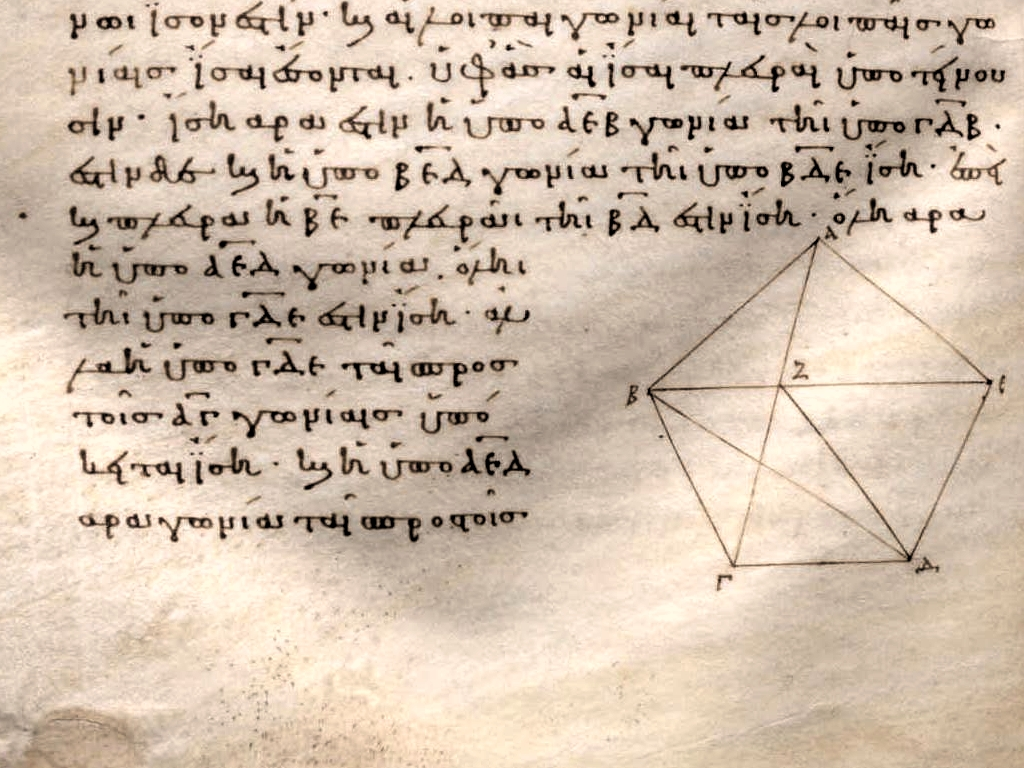 νωι ἴσον ἐστίν· καὶ αἱ λοιπαὶ γωνίαι ταῖς λοιπαῖς γω
νίαις ἴσαι ἔσονται. ὑφ' ἃς αἱ ἴσαι πλευραὶ ὑποτείνου
σιν· ἴση ἄρα ἐστὶν ἡ ὑπὸ ΑΕΒ γωνία τῆι ὑπὸ ΓΔΒ·
ἔστιν δὲ καὶ ἡ ὑπὸ ΒΕΔ γωνία τῆι ὑπὸ ΒΔΕ ἴση· ἐπεὶ
καὶ πλευρὰ ἡ ΒΕ πλευρᾶι τῆι ΒΔ ἐστὶν ἴση· ὅλη ἄρα
ἡ ὑπὸ ΑΕΔ γωνία ὅληι
τῆι ὑπὸ ΓΔΕ ἐστὶν ἴση· ἀλ
λὰ ἡ ὑπὸ ΓΔΕ ταῖς πρὸς
τοῖς ΑΓ γωνίαις ὑπό
κειται ἴση· καὶ ἡ ὑπὸ ΑΕΔ
ἄρα γωνία ταῖς πρὸς τοῖς
Α
Β
Ζ
Ε
Γ
Δ